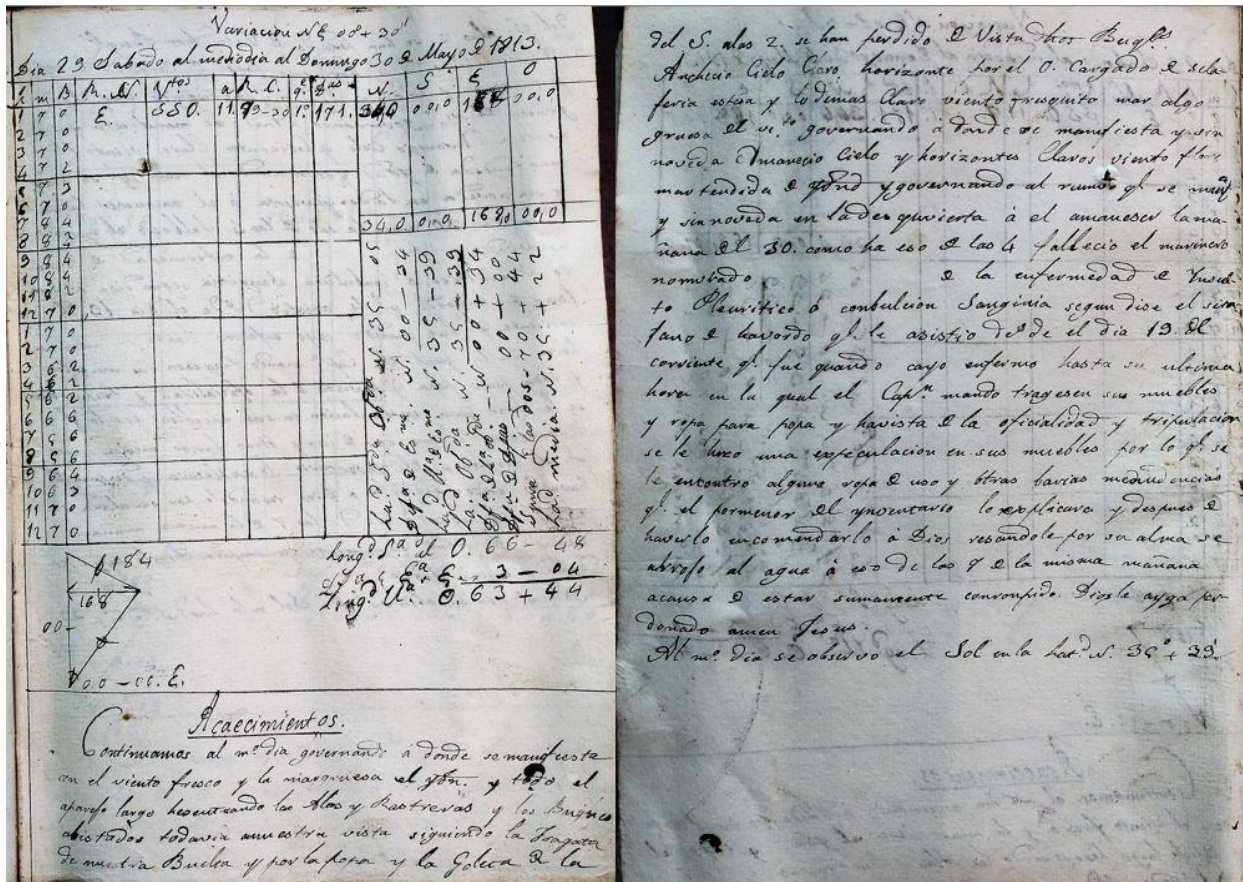 Variacion NE 08+30'
Dia 29 Sabado al mediodia al Domingo 30 de Mayo de 1813.
m B R. N. Vtos a R. C. N. S E O
1 7 0 E. SSO. 11. 79-30 1º 171. 34,0 00,0 00,0
2 7 0
3 7 0
4 7 2
5 7 3
6 7 0
7 8 4 34,0 00,0 168,0 00,0
8 8 2
9 8 4
10 8 4
11 8 2
12 7 0
1 7 0
2 7 0
3 6 2
4 6 2
5 6 2
6 6 6
7 5 6
8 5 6
9 6 4
10 6 3
11 7 0
12 7 0
N. 35 - 05
N. 00 - 34
N. 35 - 39
N. 35 + 39
00 + 34
00 + 00
70 + 44
Lad media N. 35 + 22
Longd Sa el O. 66 - 48
3 - 04
Longd O. 63 + 44
184
168
00 - 00. E.
Acaecimientos.
Continuamos al mo dia governando á donde se manifiesta
con el viento fresco y la mar gruesa el y todo el
aparejo largo las Alas y Rastreras y los
abistados todavia anuestra vista siguiendo la Fragata
de nuestra Buelta y por la popa y la Goleta de la
del S. alas 2. se han perdido de Vista dhos
Anchecio Cielo Claro, horizonte por el O. Cargado de sela-
feria y lo demas Claro viento fresquito mar algo
gruesa governando á donde se manifiesta y sin
noveda Amanecio Cielo y horizontes Claros viento
mar tendida y governando al rumbo qe se
y sin noveda à el amaneser la ma-
ñana del 30. como ha eso de las 4 fallecio el marinero
nombrado de la enfermedad de
Pleuritico ó conbulcion Sanginia segun dise el siru-
jano de havordo qe le asistio desde el dia 19 del
corriente qe fue quando cayo enfermo hasta su ultima
hora en la qual el Capn mando tragesen sus muebles
y ropa para popa y havista de la oficialidad y tripulacion
se le hizo una expeculacion en sus muebles por lo qe se
le encontro alguna ropa de uso y otras barias menudencias
qe el pormenor del ynventario lo explicara y despues de
haverlo encomendarlo à Dios resandole por su alma se
arrojo al agua à eso de las 7 de la misma mañana
acausa de estar sumamente corronpido. Dios le ayga per-
donado amen Jesus.
Al mo dia se observo el Sol en la Latd N. 35º + 39'